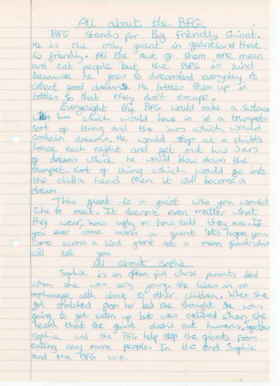 All about the BFG
BFG stands for Big Friendly Giant.
He is the only giant in giantland that
is friendly. All the rest of them are mean
and eat people but the BFG is kind
because he goes to dreamland everyday to
collect good dreams. He bottles them up in
bottles so that they don't escape.
Every night the BFG would take a suitcase
with him which would have in it a trumpet
sort of thing and the jars which would
dreams. He would stop at a child's
house each night and get out his jars
of dreams which he would blow down the
trumpet sort of thing which would go into
the child's head then it will become a
dream
This giant is a giant who you wanted
like to meet. It doesn't even matter what
they wear, how ugly or how tall they are if
you ever come want a giant into hope you
come across a kind giant not a mean giant who
will eat you
All about Sophie
Sophie is an orphan girl whose parents died
when she was very young. She lives in an
orphanage with lots of other children. When she
got snatched from her bed she thought she was
going to get eaten up but was relieved when she
heard that the giant didn't eat humans, together
Sophie and the BFG help stop the giants from
eating any more people. In the end Sophie
and the BFG live